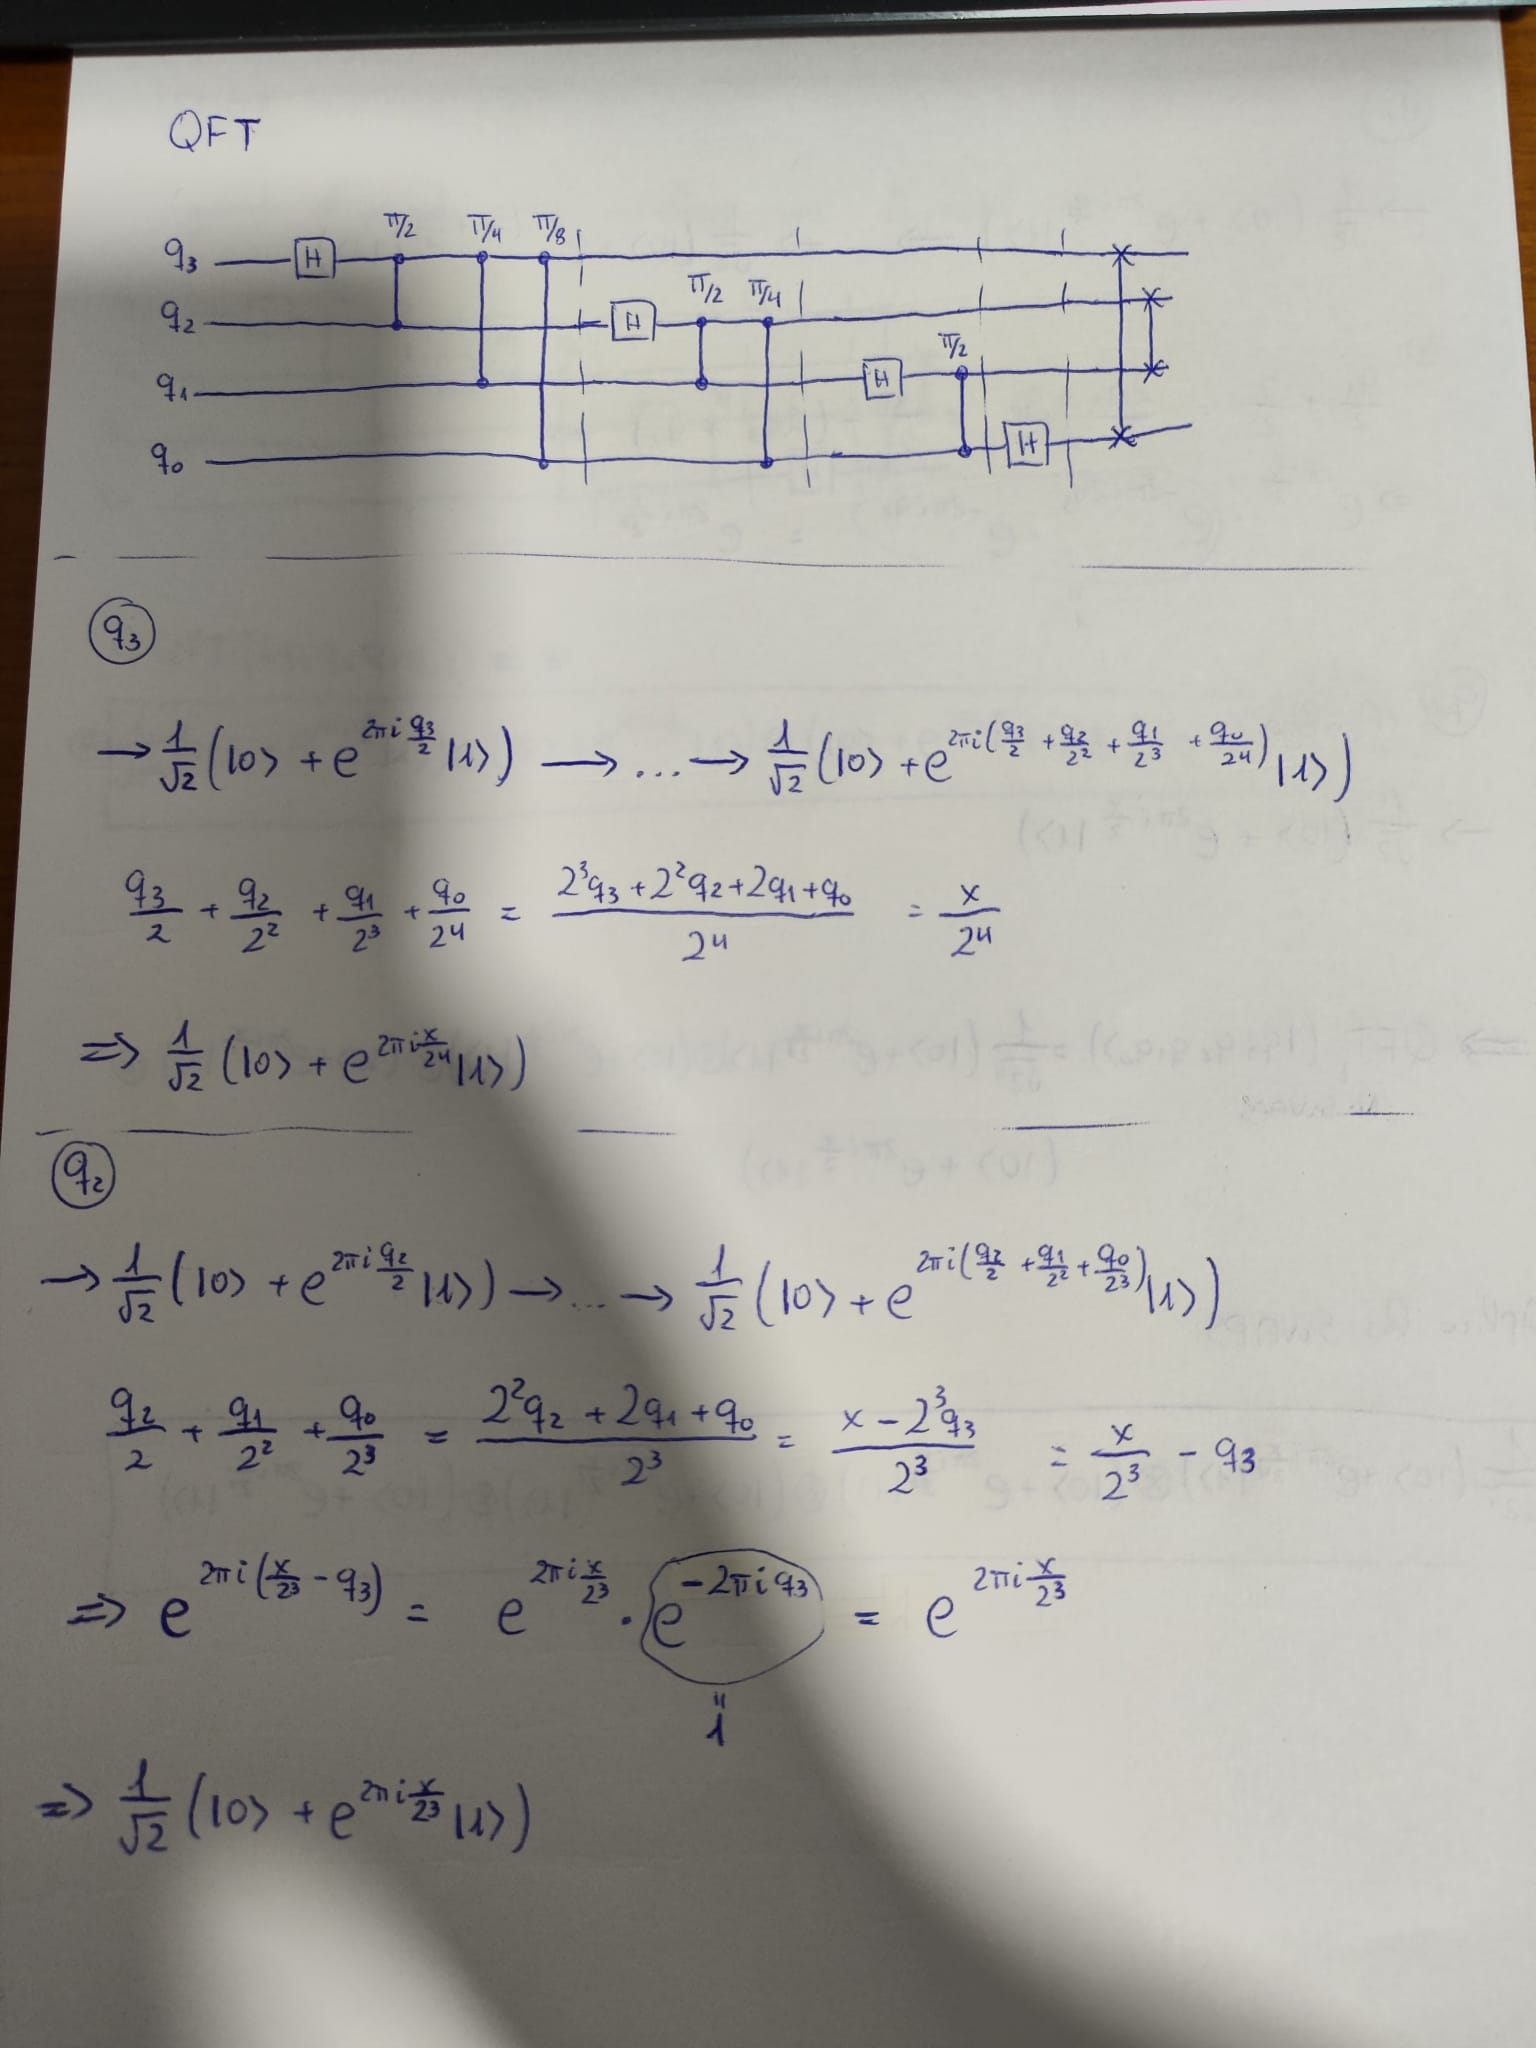 QFT
π/2 π/4 π/8
q₃ H
π/2 π/4
q₂ H
π/2
q₁ H
q₀ H
q₃
→ 1/√2 (|0⟩ + e^{2πi q₃/2} |1⟩) → ... → 1/√2 (|0⟩ + e^{2πi(q₃/2 + q₂/2² + q₁/2³ + q₀/2⁴)} |1⟩)
q₃/2 + q₂/2² + q₁/2³ + q₀/2⁴ = (2³q₃ + 2²q₂ + 2q₁ + q₀)/2⁴ = x/2⁴
⇒ 1/√2 (|0⟩ + e^{2πi x/2⁴} |1⟩)
q₂
→ 1/√2 (|0⟩ + e^{2πi q₂/2} |1⟩) → ... → 1/√2 (|0⟩ + e^{2πi(q₂/2 + q₁/2² + q₀/2³)} |1⟩)
q₂/2 + q₁/2² + q₀/2³ = (2²q₂ + 2q₁ + q₀)/2³ = (x − 2³q₃)/2³ = x/2³ − q₃
⇒ e^{2πi(x/2³ − q₃)} = e^{2πi x/2³} · e^{−2πi q₃} = e^{2πi x/2³}
=
1
⇒ 1/√2 (|0⟩ + e^{2πi x/2³} |1⟩)